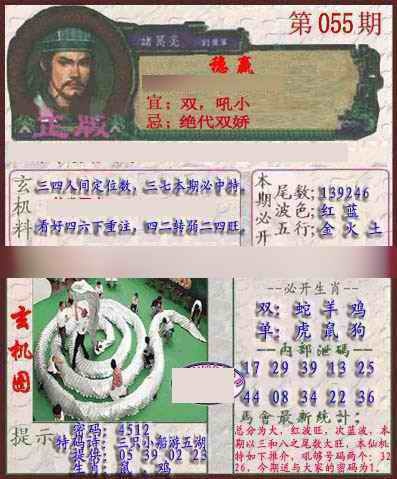 第055期
諸葛亮
稳赢
宜：双，吼小
忌：绝代双娇
正版
玄机料
三四人间定位数，三七本期必中特。
看好四六下重注，四二转弱二四旺。
本期必开
尾数；139246
波色；红 蓝
五行；金 火 土
玄机图
--必开生肖--
双：蛇 羊 鸡
单：虎 鼠 狗
--内部泄码--
17 29 39 13 25
44 08 34 22 36
馬會最新統計：
总分为大，红波旺，次蓝波，本
期以三和八之尾数大旺，本仙机
特如下推介，吼够号码两个：32
26，今期送与大家的密码为1。
提示
密码：4512
特码诗：三只小船游五湖
提供：05 39 02 23
生肖：鼠、鸡